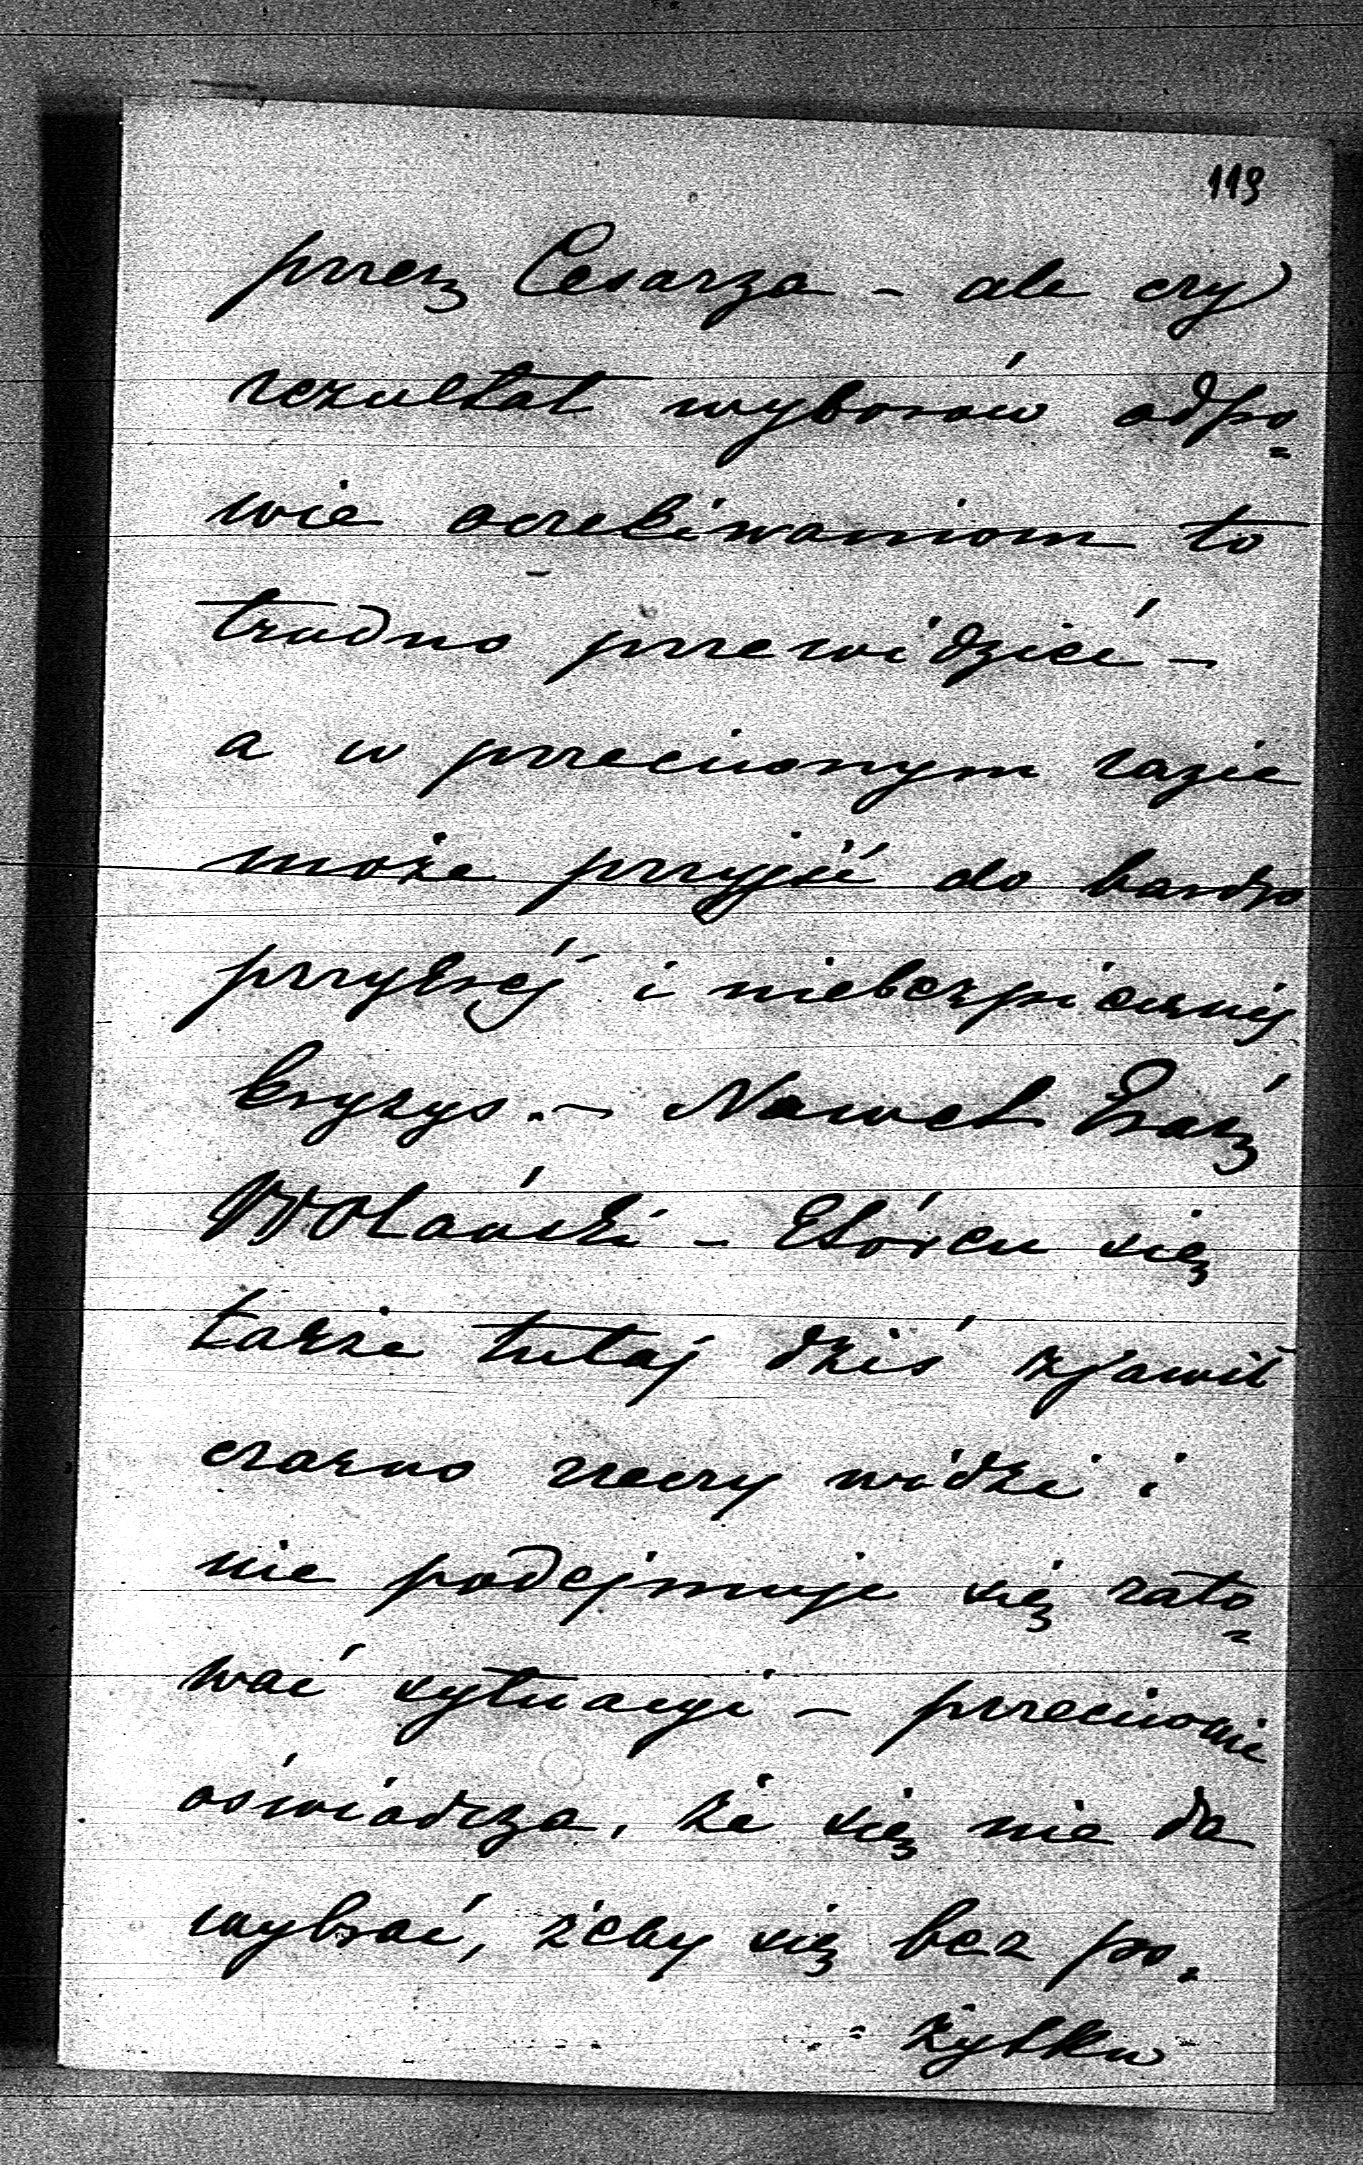 119
przez Cesarza – ale czy
rezultat wyborów odpo=
wie oczekiwaniom to
trudno przewidzieć –
a w przeciwnym razie
może przyjść do bardzo
przykrej i niebezpiecznej
kryzys. – Nawet
Wolański – który się
także tutaj dziś zjawił
czarno rzeczy widzi i
nie podejmuje się rato=
wać sytuacyi – przeciwnie
oświadcza, że się nie da
wybrać, żeby się bez po=
= żytku